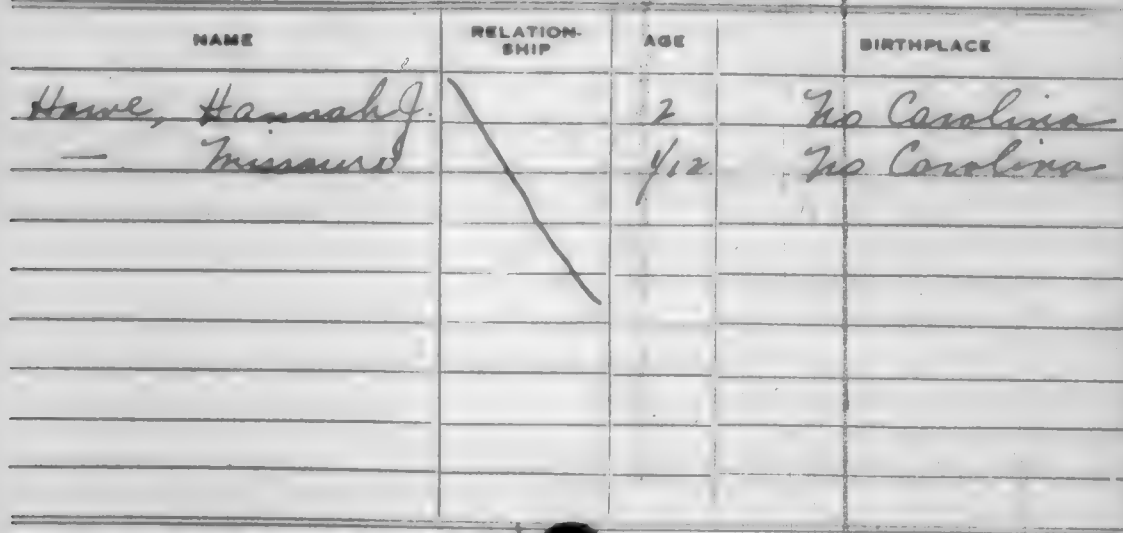 NAME RELATION-SHIP AGE BIRTHPLACE
Howe, Hannah J. 2 No Carolina
— Missouri 1/12 No Carolina